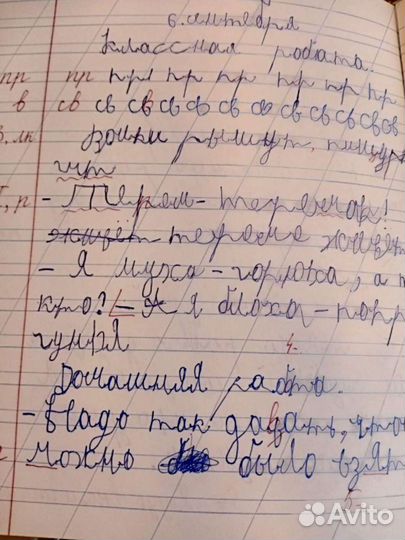 6 сентября
Классная робата.
пр пр при пр пр пр пр пр
в св св св св св св св св св св св
волки рыщут, пищур
чит
- Терем - теремок!
живёт тереме живёт
- Я муха - горюха, а т
кто? - Я блоха - попр
гунья
4.
Домашняя работа.
- Надо так давать, что
можно было взят
Avito